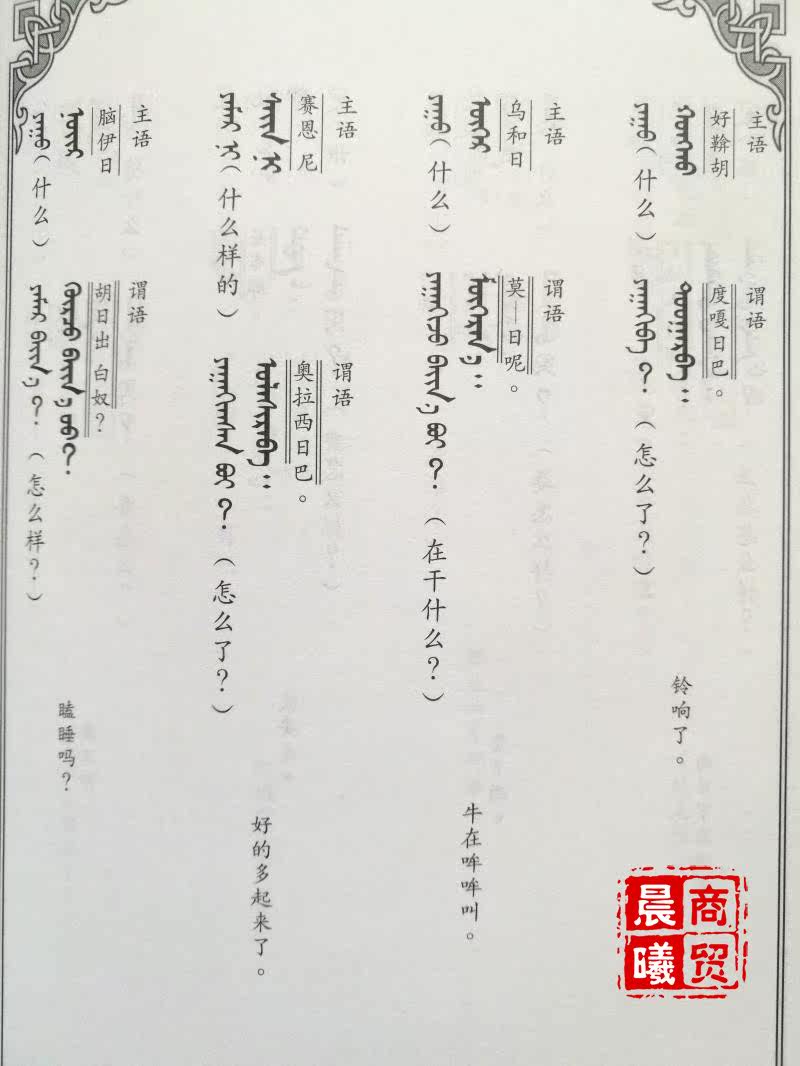 主语 谓语
好鞥胡 度嘎日巴。
ᠬᠣᠩᠬᠣ ᠳᠤᠤᠭᠠᠷᠪᠠ᠃
ᠶᠠᠭᠤ（什么） ？（怎么了？）
铃响了。
主语 谓语
乌和日 莫—日呢。
ᠦᠬᠡᠷ ᠮᠥᠭᠡᠷᠡᠨ᠎ᠡ᠃
ᠶᠠᠭᠤ（什么） ᠪᠠᠶᠢᠨ᠎ᠠ ᠪᠤᠢ？（在干什么？）
牛在哞哞叫。
主语 谓语
赛恩尼 奥拉西日巴。
ᠰᠠᠶᠢᠨ ᠨᠢ ᠣᠯᠠᠰᠢᠷᠠᠪᠠ᠃
ᠨᠢ（什么样的） ᠪᠤᠢ？（怎么了？）
好的多起来了。
主语 谓语
脑伊日 胡日出 白奴？
ᠨᠣᠶᠢᠷ ᠬᠦᠷᠴᠦ ᠪᠠᠶᠢᠨ᠎ᠠ ᠤᠤ？
ᠶᠠᠭᠤ（什么） ᠪᠠᠶᠢᠨ᠎ᠠ？（怎么样？）
瞌睡吗？
晨曦
商贸